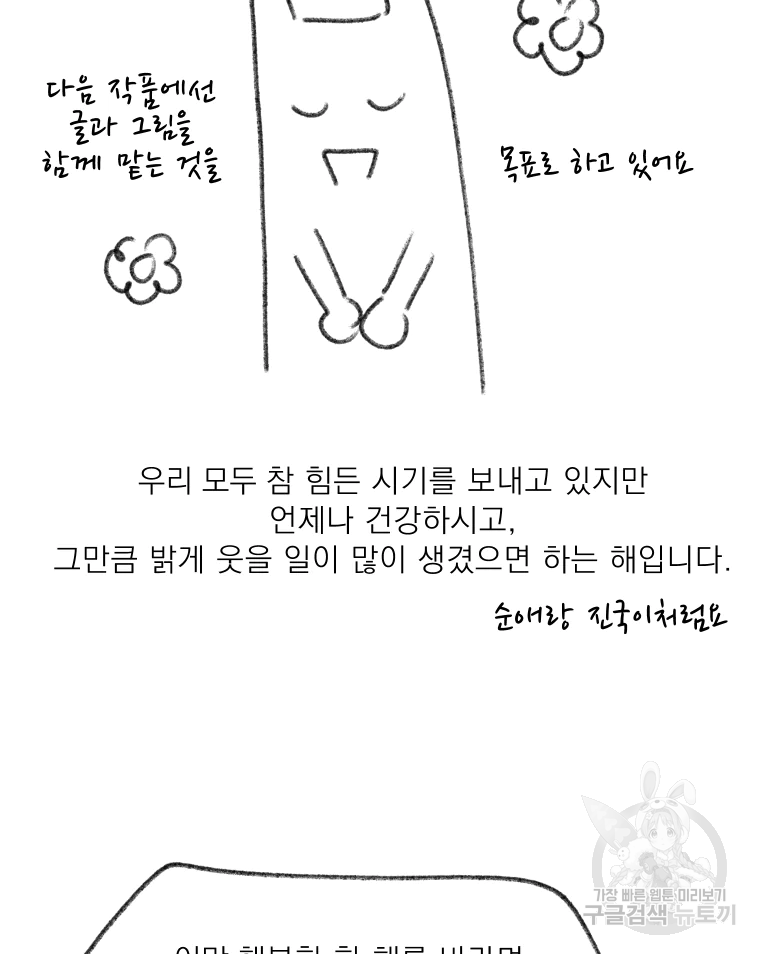 다음 작품에선
글과 그림을
함께 맡는 것을
목표로 하고 있어요
우리 모두 참 힘든 시기를 보내고 있지만
언제나 건강하시고,
그만큼 밝게 웃을 일이 많이 생겼으면 하는 해입니다.
순애랑 진국이처럼요
가장 빠른 웹툰 미리보기
구글검색 뉴토끼